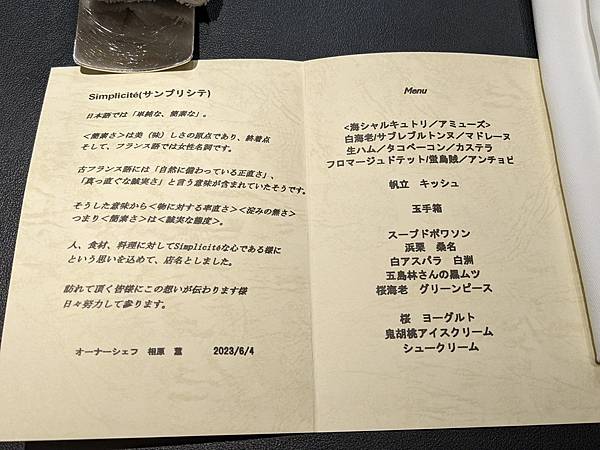 Simplicité(サンプリシテ)
日本語では「単純な、簡素な」。
<簡素さ>は美(味)しさの原点であり、終着点
そして、フランス語では女性名詞です。
古フランス語には「自然に備わっている正直さ」、
「真っ直ぐな誠実さ」と言う意味が含まれていたそうです。
そうした意味から<物に対する率直さ><淀みの無さ>
つまり<簡素さ>は<誠実な態度>。
人、食材、料理に対してSimplicitéな心である様に
という思いを込めて、店名としました。
訪れて頂く皆様にこの想いが伝わります様
日々努力して参ります。
オーナーシェフ 相原 薫 2023/6/4
Menu
<海シャルキュトリ/アミューズ>
白海老/サブレブルトンヌ/マドレーヌ
生ハム/タコベーコン/カステラ
フロマージュドテット/蛍烏賊/アンチョビ
帆立 キッシュ
玉手箱
スープドポワソン
浜栗 桑名
白アスパラ 白洲
五島林さんの黒ムツ
桜海老 グリーンピース
桜 ヨーグルト
鬼胡桃アイスクリーム
シュークリーム